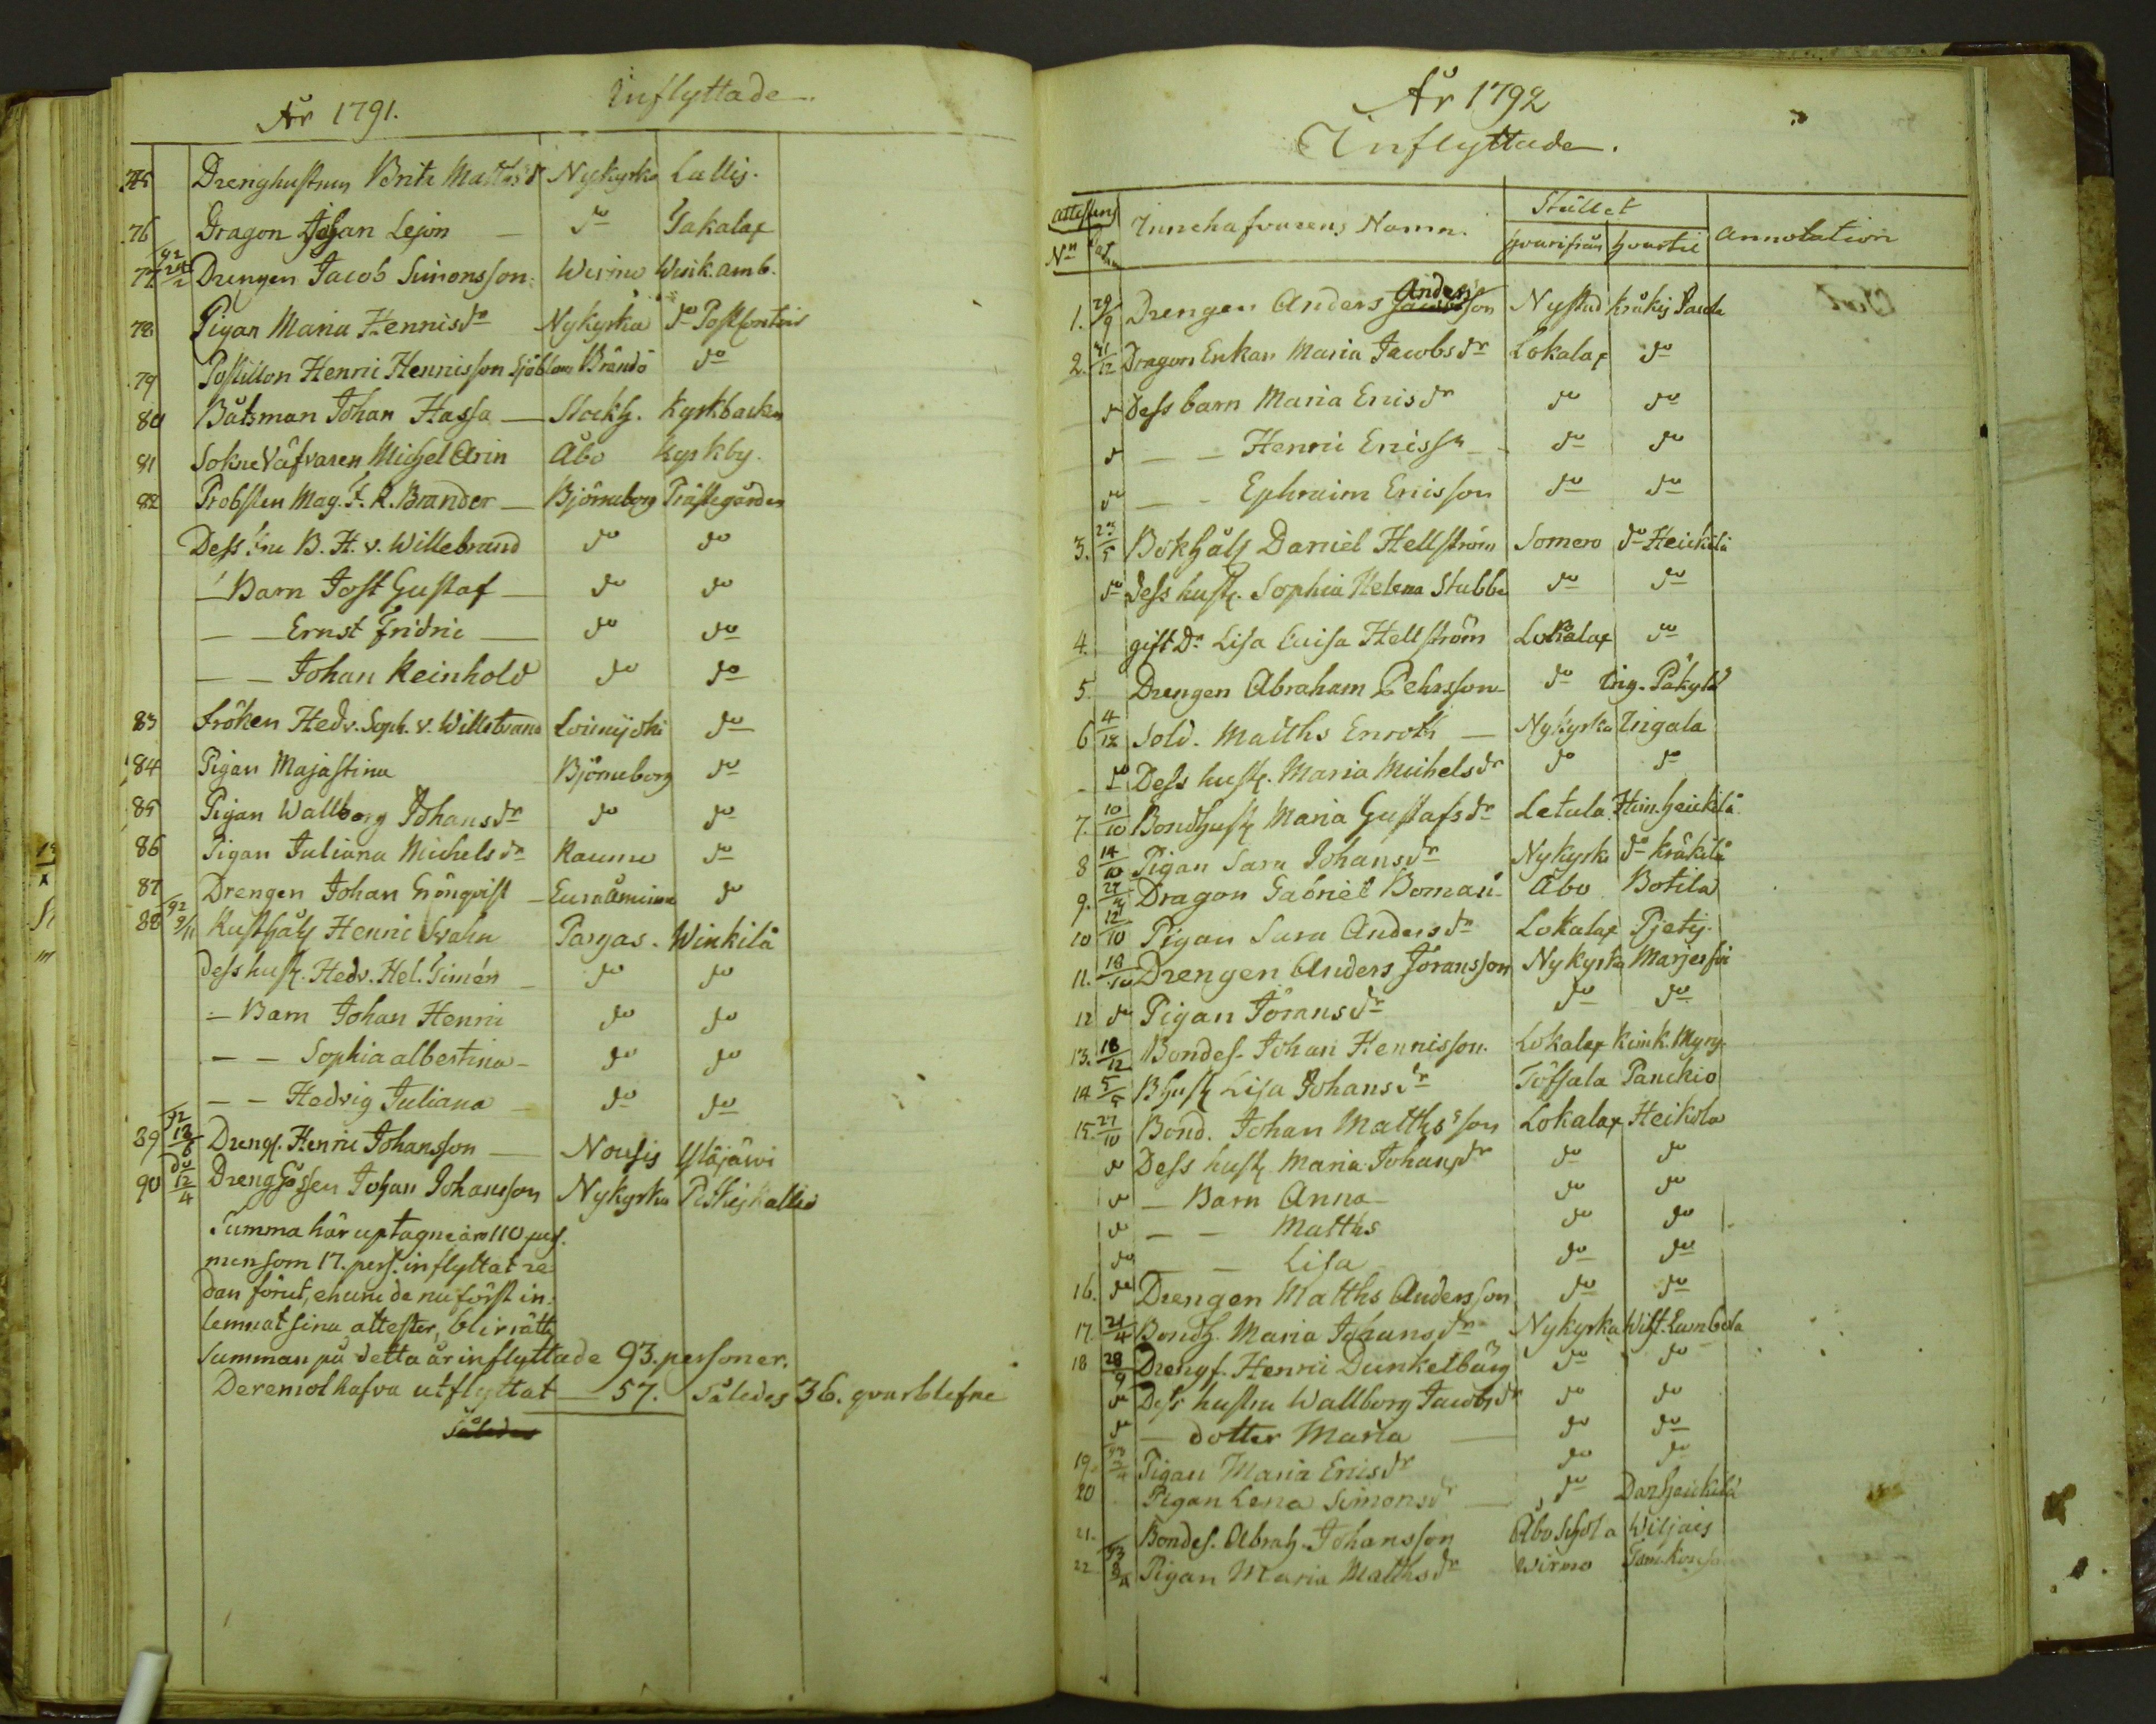 År 1791. Inflyttade
75 Drenghustrun Brita Matthsdr Nykyrka Lallis.
76 Dragon Johan Lejon — do Jakalax
77 92 24/2 Drengen Jacob Simonsson Wirmo Wesik. amb.
78 Pigan Maria Henrisdr Nykyrka do Postkontoir
79 Postillon Henric Henrisson Sjöblom Brändö do
80 Båtsman Johan Hassa — Stockh. Kyrkbacken
81 Sokne Väfvaren Michel Arin Åbo Kyrkby.
82 Probsten Mag. F. R. Brander — Björneborg Prästegården
Dess fru B. H. v. Willebrand do do
— Barn Jost Gustaf — do do
— — Ernst Fridric — do do
— — Johan Reinhold do do
83 Fröken Hedv. Soph. v. Willebrand Loimijoki do
84 Pigan Majastina Björneborg do
85 Pigan Wallborg Johansdr do do
86 Pigan Juliana Michelsdr Raumo do
87 Drengen Johan Grönqvist — Euraåminne do
88 92 9/11 Rusthåll Henric Svahn Pargas. Winkilä
Dess hustr. Hedv. Hel. Simén — do do
— Barn Johan Henric do do
— — Sophia albertina — do do
— — Hedvig Juliana — do do
89 92 18/6 Drengs. Henric Johansson — Nousis Yläjärvi
90 do 12/4 Drenggossen Johan Johansson Nykyrka Pitkiskallio
Summa här uptagne äro 110 pers.
men som 17. pers. inflyttat re
dan förut, ehuru de nu först in-
lemnat sina attester, blir rätta
summan på detta år inflyttade 93. personer.
Deremot hafva utflyttat — 57. Således 36. qvarblefne
Således
År 1792
Inflyttade.
Attestens Innehafvarens Namn. Stället Annotation
No Datum hvarifrån hvartil
1. 29/9 Drengen Anders Anders Jacobsson Nystad kräkis
2. 31/12 Dragon Enkan Maria Jacobsdr Lokalax do
do Dess barn Maria Ericsdr do do
do — — Henric Ericss. — do do
do — — Ephraim Ericsson do do
3. 23/5 Bokhåll Daniel Hellström Somero do Heickilä
do Dess hustr. Sophia Helena Stubbe do do
4. gift Dr. Lisa Cuisa Hellström Lokalax do
5. Drengen Abraham Pehrsson do Ung. Päkylä
6 4/12 Sold. Matths Enroth — Nykyrka Ungala
do Dess hustr. Maria Michelsdr do do
7. 10/10 Bondhustr Maria Gustafsdr Letala Him. heickilä
8 14/10 Pigan Sara Johansdr Nykyrka do kräkilä
9. Dragon Gabriel Boman Åbo Botila
10 12/10 Pigan Sara Andersdr Lokalax Pjetis
11. 18/10 Drengen Anders Jöransson Nykyrka
12 do Pigan Jöransdr do do
13. 18/12 Bondes. Johan Henrisson. Lokalax
14 5/5 Bhustr Lisa Johansdr Töfsala Panckio
15. 27/10 Bond. Johan Matthsson Lokalax Heikola
do Dess hustr. Maria Johansdr do do
do — Barn Anna — do do
do — — Matths do do
do — — Lisa do do
16. do Drengen Matths Andersson do do
17. 21/4 Bondh. Maria Johansdr Nykyrka
18 28/9 Drengs. Henric Dunkelburg do do
do Dess hustru Wallborg Jacobsdr do do
do — dotter Maria — do do
19. 93 Pigan Maria Ericsdr do do
20 Pigan Lena Simonsdr — do Darsheickilä
21. Bondes. Abrah. Johansson Åbo schola Wiljais
22 93 Pigan Maria Matthsdr Wirmo